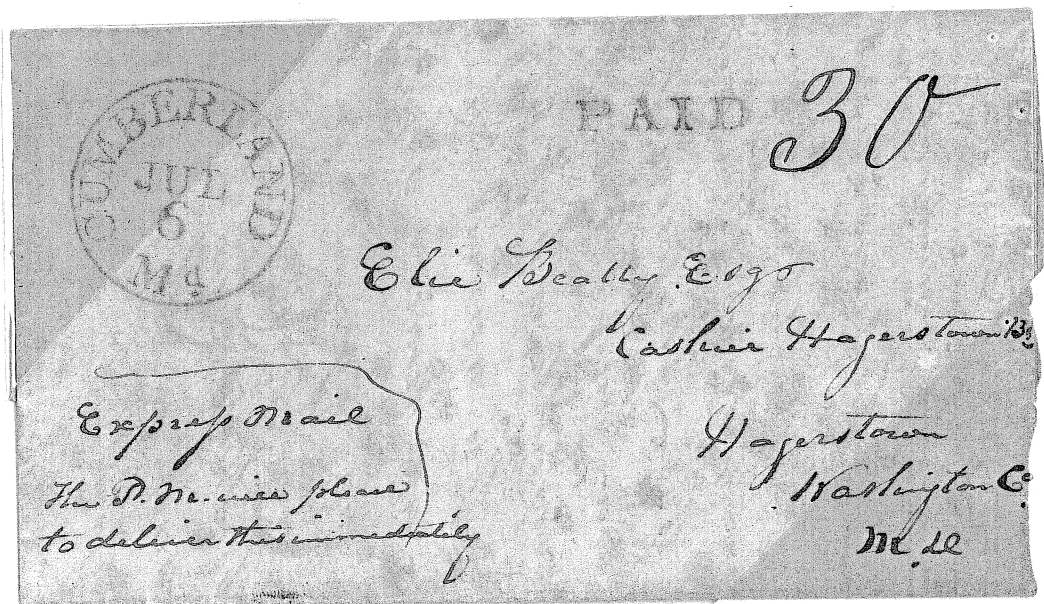 CUMBERLAND
JUL
6
Md.
PAID 30
Elie Beatty Esqr
Cashier Hagerstown
Hagerstown
Washington Co
Md
Express Mail
The P. M. will please
to deliver this immediately